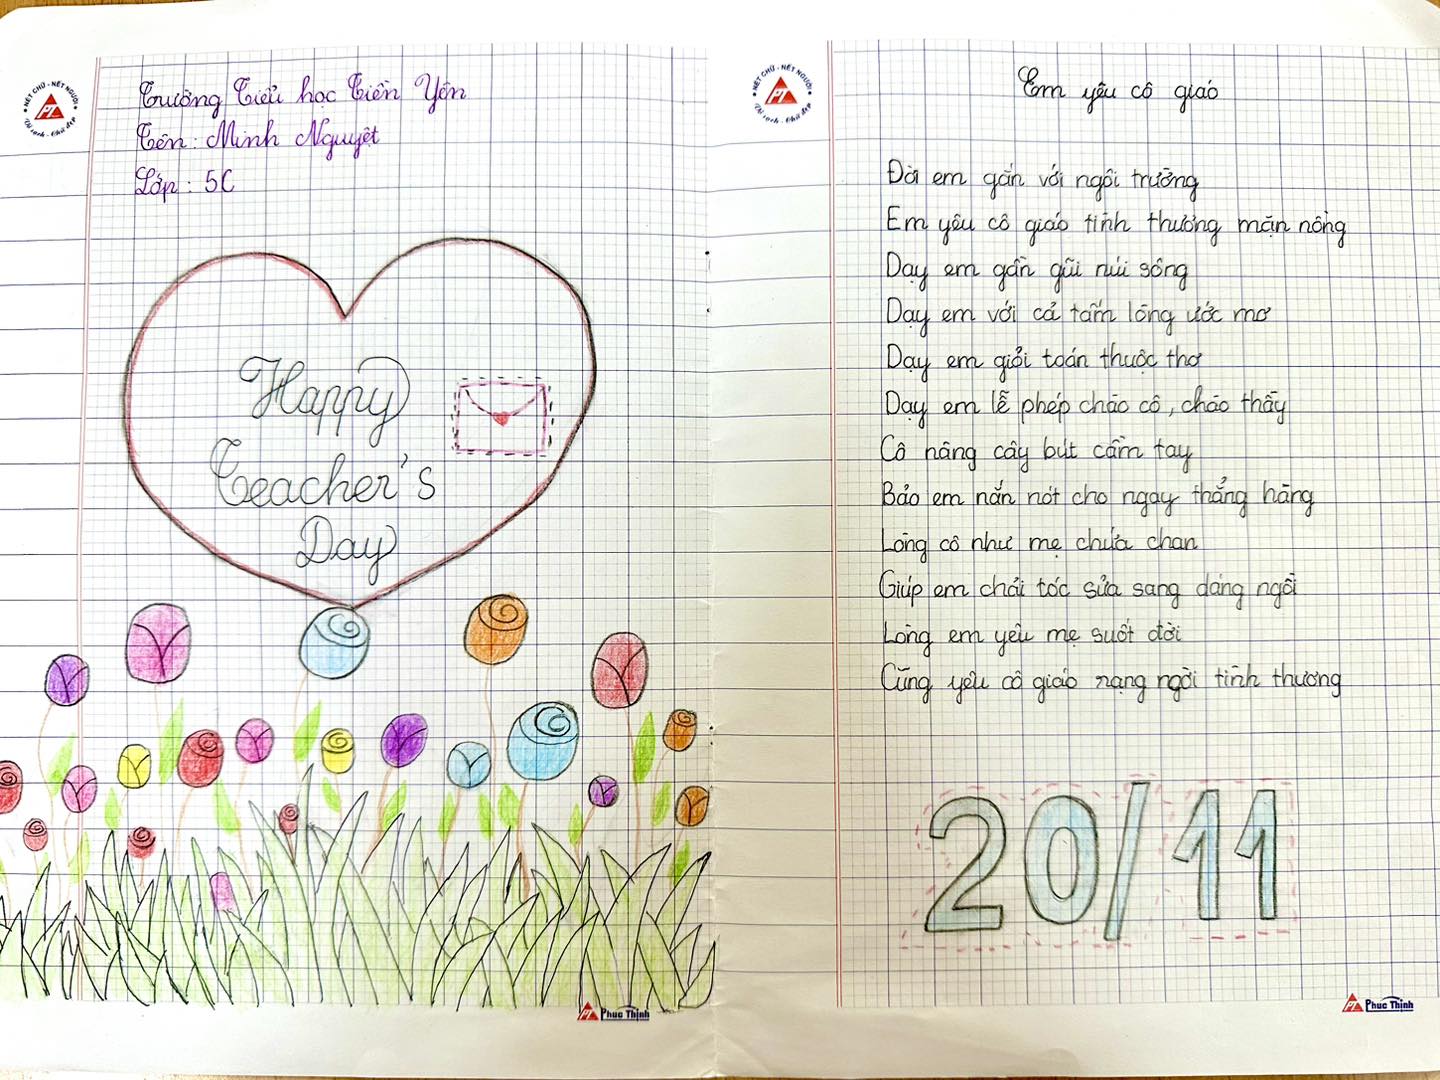 NÉT CHỮ - NẾT NGƯỜI
PT
Vở sạch - Chữ đẹp
Trường Tiểu học Tiền Yên
Tên: Minh Nguyệt
Lớp: 5C
Happy
Teacher's
Day
PT Phuc Thinh
NÉT CHỮ - NẾT NGƯỜI
PT
Vở sạch - Chữ đẹp
Em yêu cô giáo
Đời em gắn với ngôi trường
Em yêu cô giáo tình thương mặn nồng
Dạy em gần gũi núi sông
Dạy em với cả tấm lòng ước mơ
Dạy em giỏi toán thuộc thơ
Dạy em lễ phép chào cô, chào thầy
Cô nâng cây bút cầm tay
Bảo em nắn nót cho ngay thẳng hàng
Lòng cô như mẹ chứa chan
Giúp em chải tóc sửa sang dáng ngồi
Lòng em yêu mẹ suốt đời
Cũng yêu cô giáo rạng ngời tình thương
20/11
PT Phuc Thinh